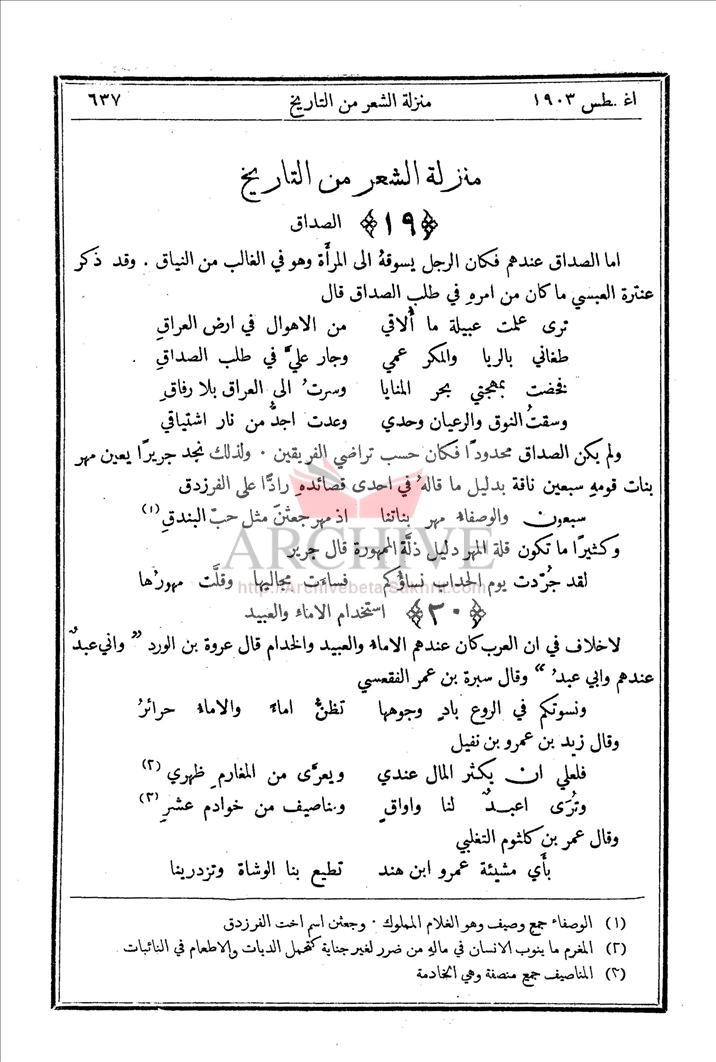 اغسطس ١٩٠٣ منزلة الشعر من التاريخ ٦٣٧
منزلة الشعر من التاريخ
﴿١٩﴾ الصداق
اما الصداق عندهم فكان الرجل يسوقهُ الى المرأَة وهو في الغالب من النياق . وقد ذكر
عنترة العبسي ما كان من امرهِ في طلب الصداق قال
ترى علمت عبيلة ما أُلاقي من الاهوال في ارض العراقِ
طغاني بالربا والمكر عمي وجار عليَّ في طلب الصداقِ
فخضت بمهجتي بحر المنايا وسرتُ الى العراق بلا رفاقِ
وسقتُ النوق والرعيان وحدي وعدت اجدُّ من نار اشتياقي
ولم يكن الصداق محدودًا فكان حسب تراضي الفريقين . ولذلك نجد جريرًا يعين مهر
بنات قومهِ سبعين ناقة بدليل ما قالهُ في احدى قصائدهِ رادًّا على الفرزدق
سبعون والوصفاءُ مهر بناتنا اذ مهر جعثنَ مثل حبّ البندقِ (١)
وكثيرًا ما تكون قلة المهر دليل ذلَّة الممهورة قال جرير
لقد جُرّدت يوم الحداب نساؤُكم فساءَت مجاليها وقلَّت مهورُها
﴿٢٠﴾ استخدام الاماء والعبيد
لا خلاف في ان العرب كان عندهم الاماءُ والعبيد والخدام قال عروة بن الورد " واني عبدٌ
عندهم وابي عبدُ " وقال سبرة بن عمر الفقعسي
ونسوتكم في الروع بادٍ وجوهها تظنُّ اماءً والاماءُ حرائرُ
وقال زيد بن عمرو بن نفيل
فلعلي ان يكثر المال عندي ويعرَّى من المغارمِ ظهري (٢)
وتُرَى اعبدٌ لنا واواقٍ ومناصيف من خوادم عشرِ (٣)
وقال عمر بن كلثوم التغلبي
بأَي مشيئة عمرو ابن هند تطيع بنا الوشاة وتزدرينا
(١) الوصفاءُ جمع وصيف وهو الغلام المملوك . وجعثن اسم اخت الفرزدق
(٢) المغرم ما ينوب الانسان في مالهِ من ضرر لغير جناية كتحمل الديات والاطعام في النائبات
(٣) المناصيف جمع منصفة وهي الخادمة
ARCHIVE
http://Archivebeta.Sakhrit.com